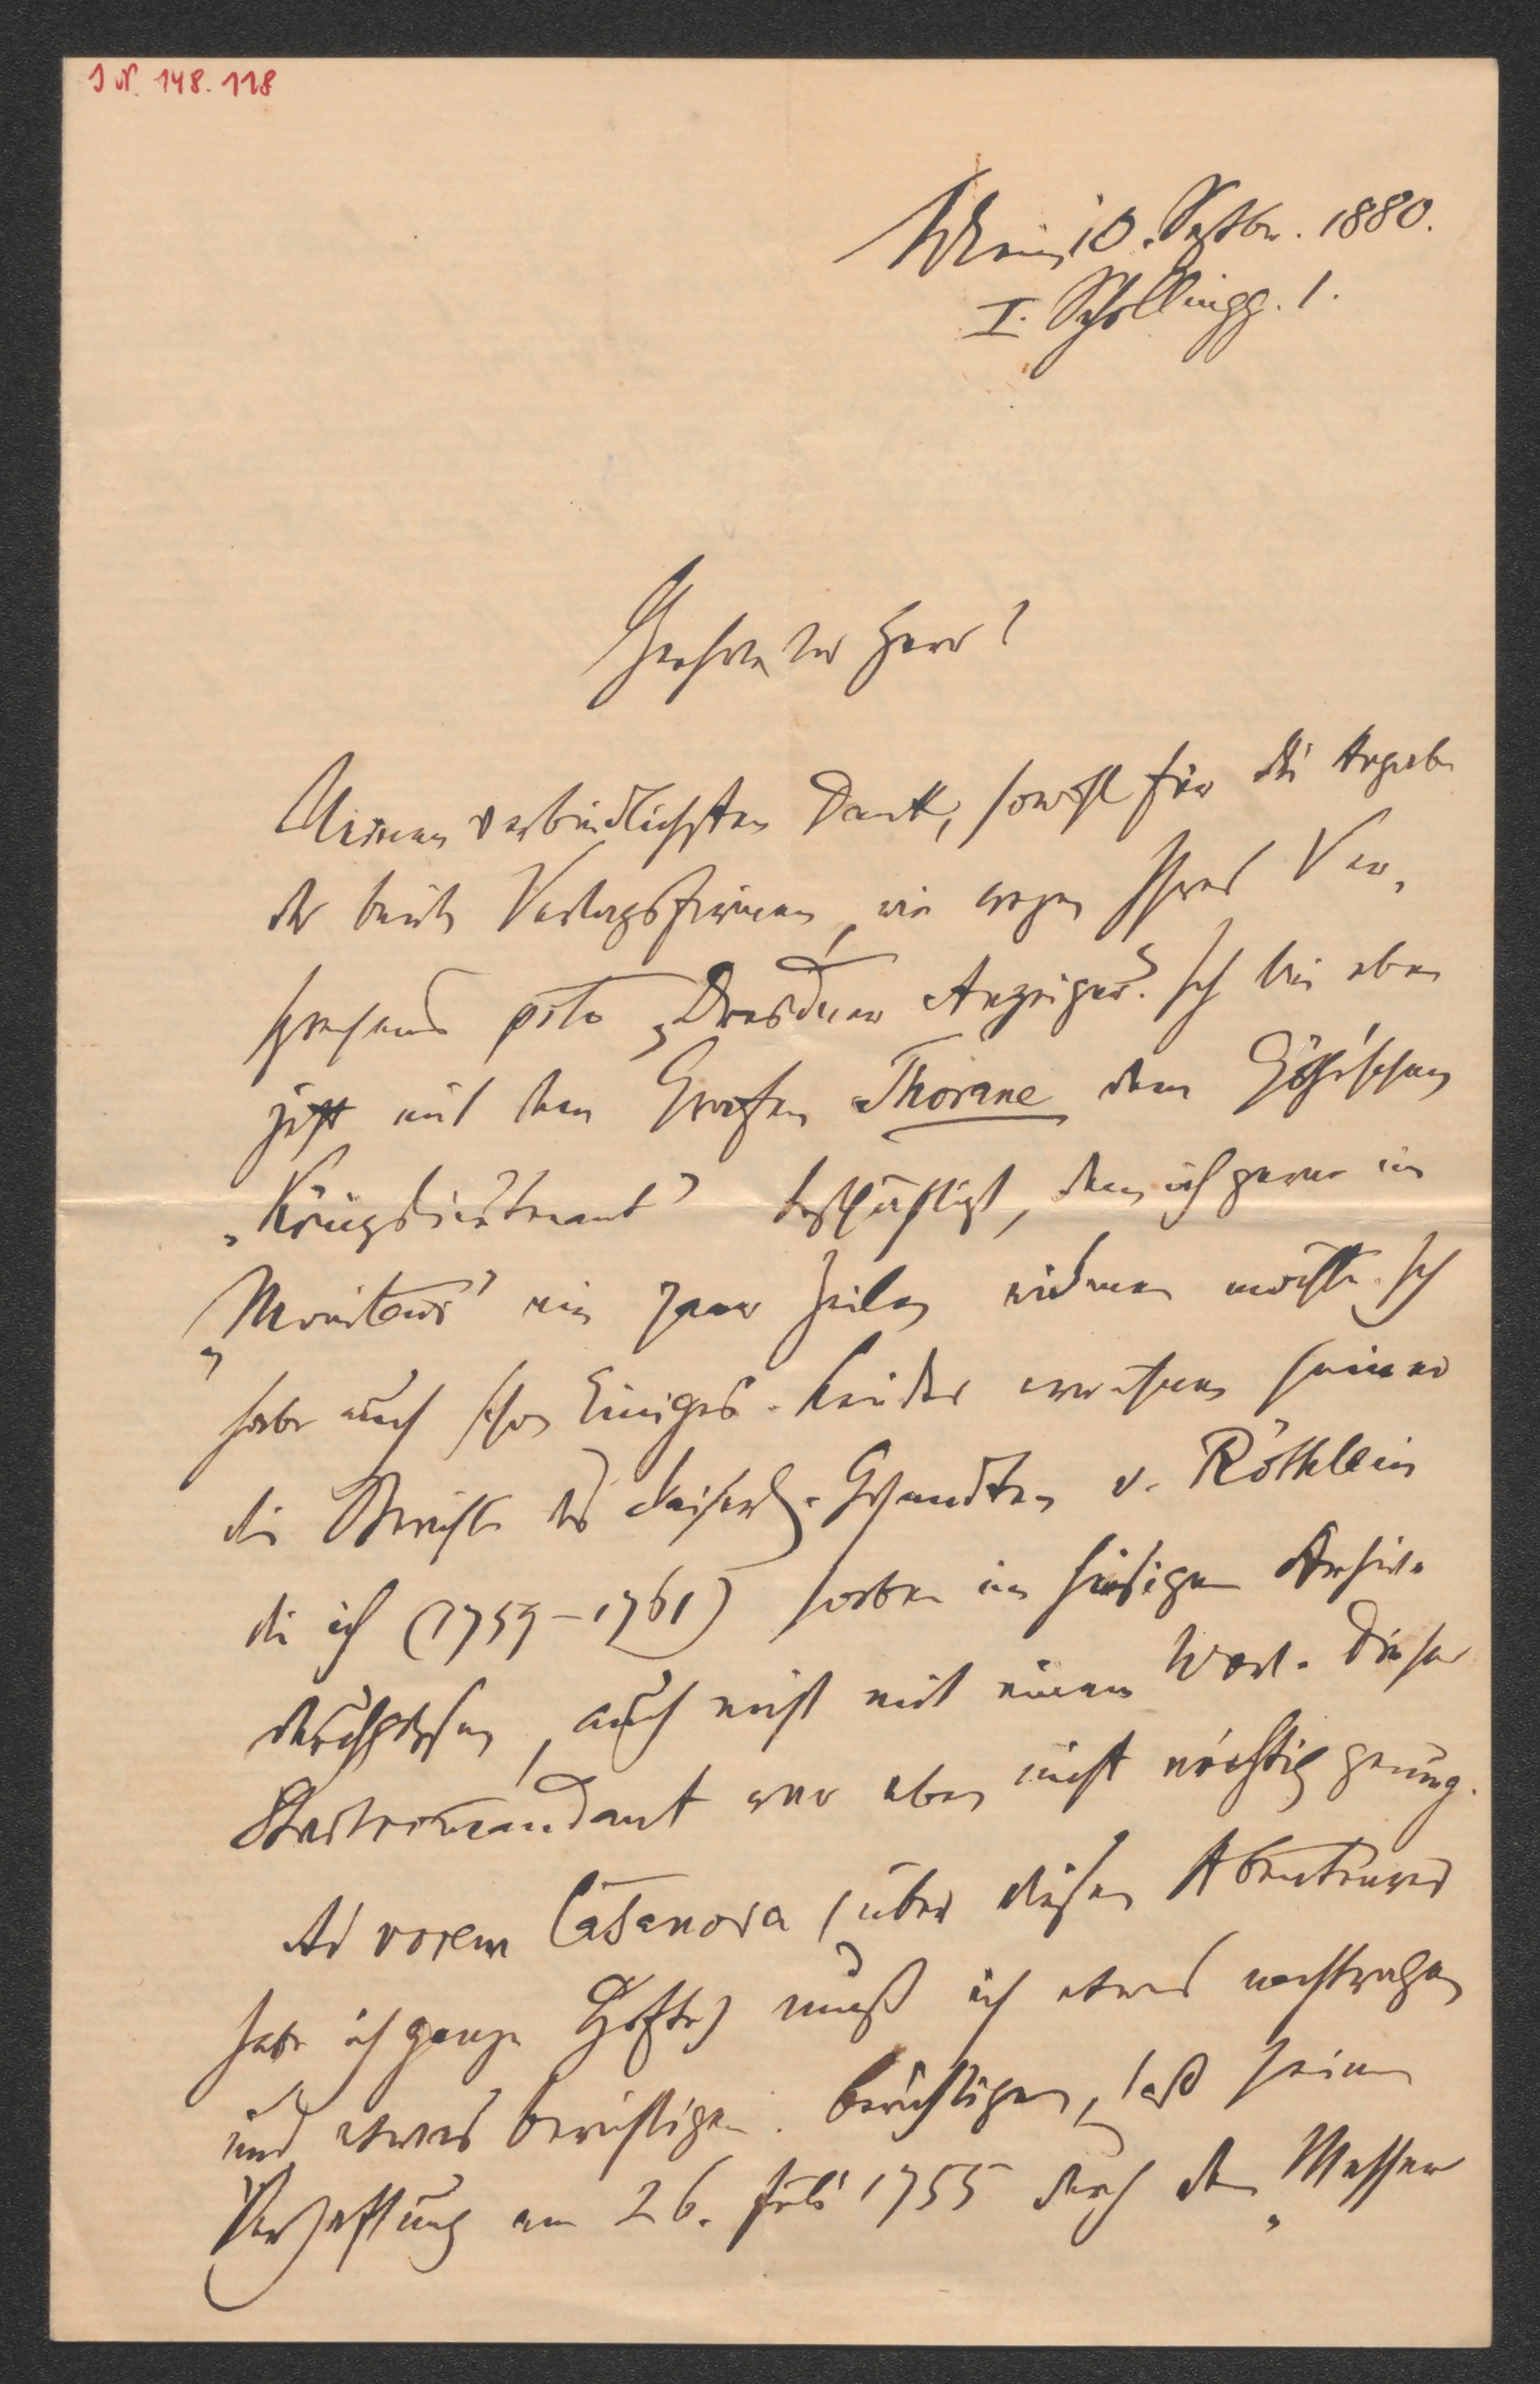 I N. 148.118
Wien 10. Septbr. 1880.
I. Schellingg. 1.
Geehrtester Herr!
Meinen verbindlichsten Dank, sowohl für die Angabe
der beiden Verlagsfirmen, wie wegen Ihres Ver-
sprechens pcto „Dresdner Anzeiger“. Ich bin eben
jetzt mit dem Grafen Thorane dem Göthe'schen
„Königslieutenant“ beschäftigt, dem ich gerne im
„Moniteur“ ein paar Zeilen widmen möchte. Ich
habe auch schon Einiges. Leider erwähnen seiner
die Berichte des kaiserl. Gesandten v. Röthlein
die ich (1759–1761) soeben im hiesigen Archive
durchgesehen, auch nicht mit einem Wort. Dieser
Stadtcomandant war eben nicht wichtig genug.
Ad vocem Casanova (über diesen Abenteurer
habe ich ganze Hefte) muß ich etwas nachtragen
und etwas berichtigen. Berichtigen, daß seine
Verhaftung am 26. Juli 1755 durch den „Messer